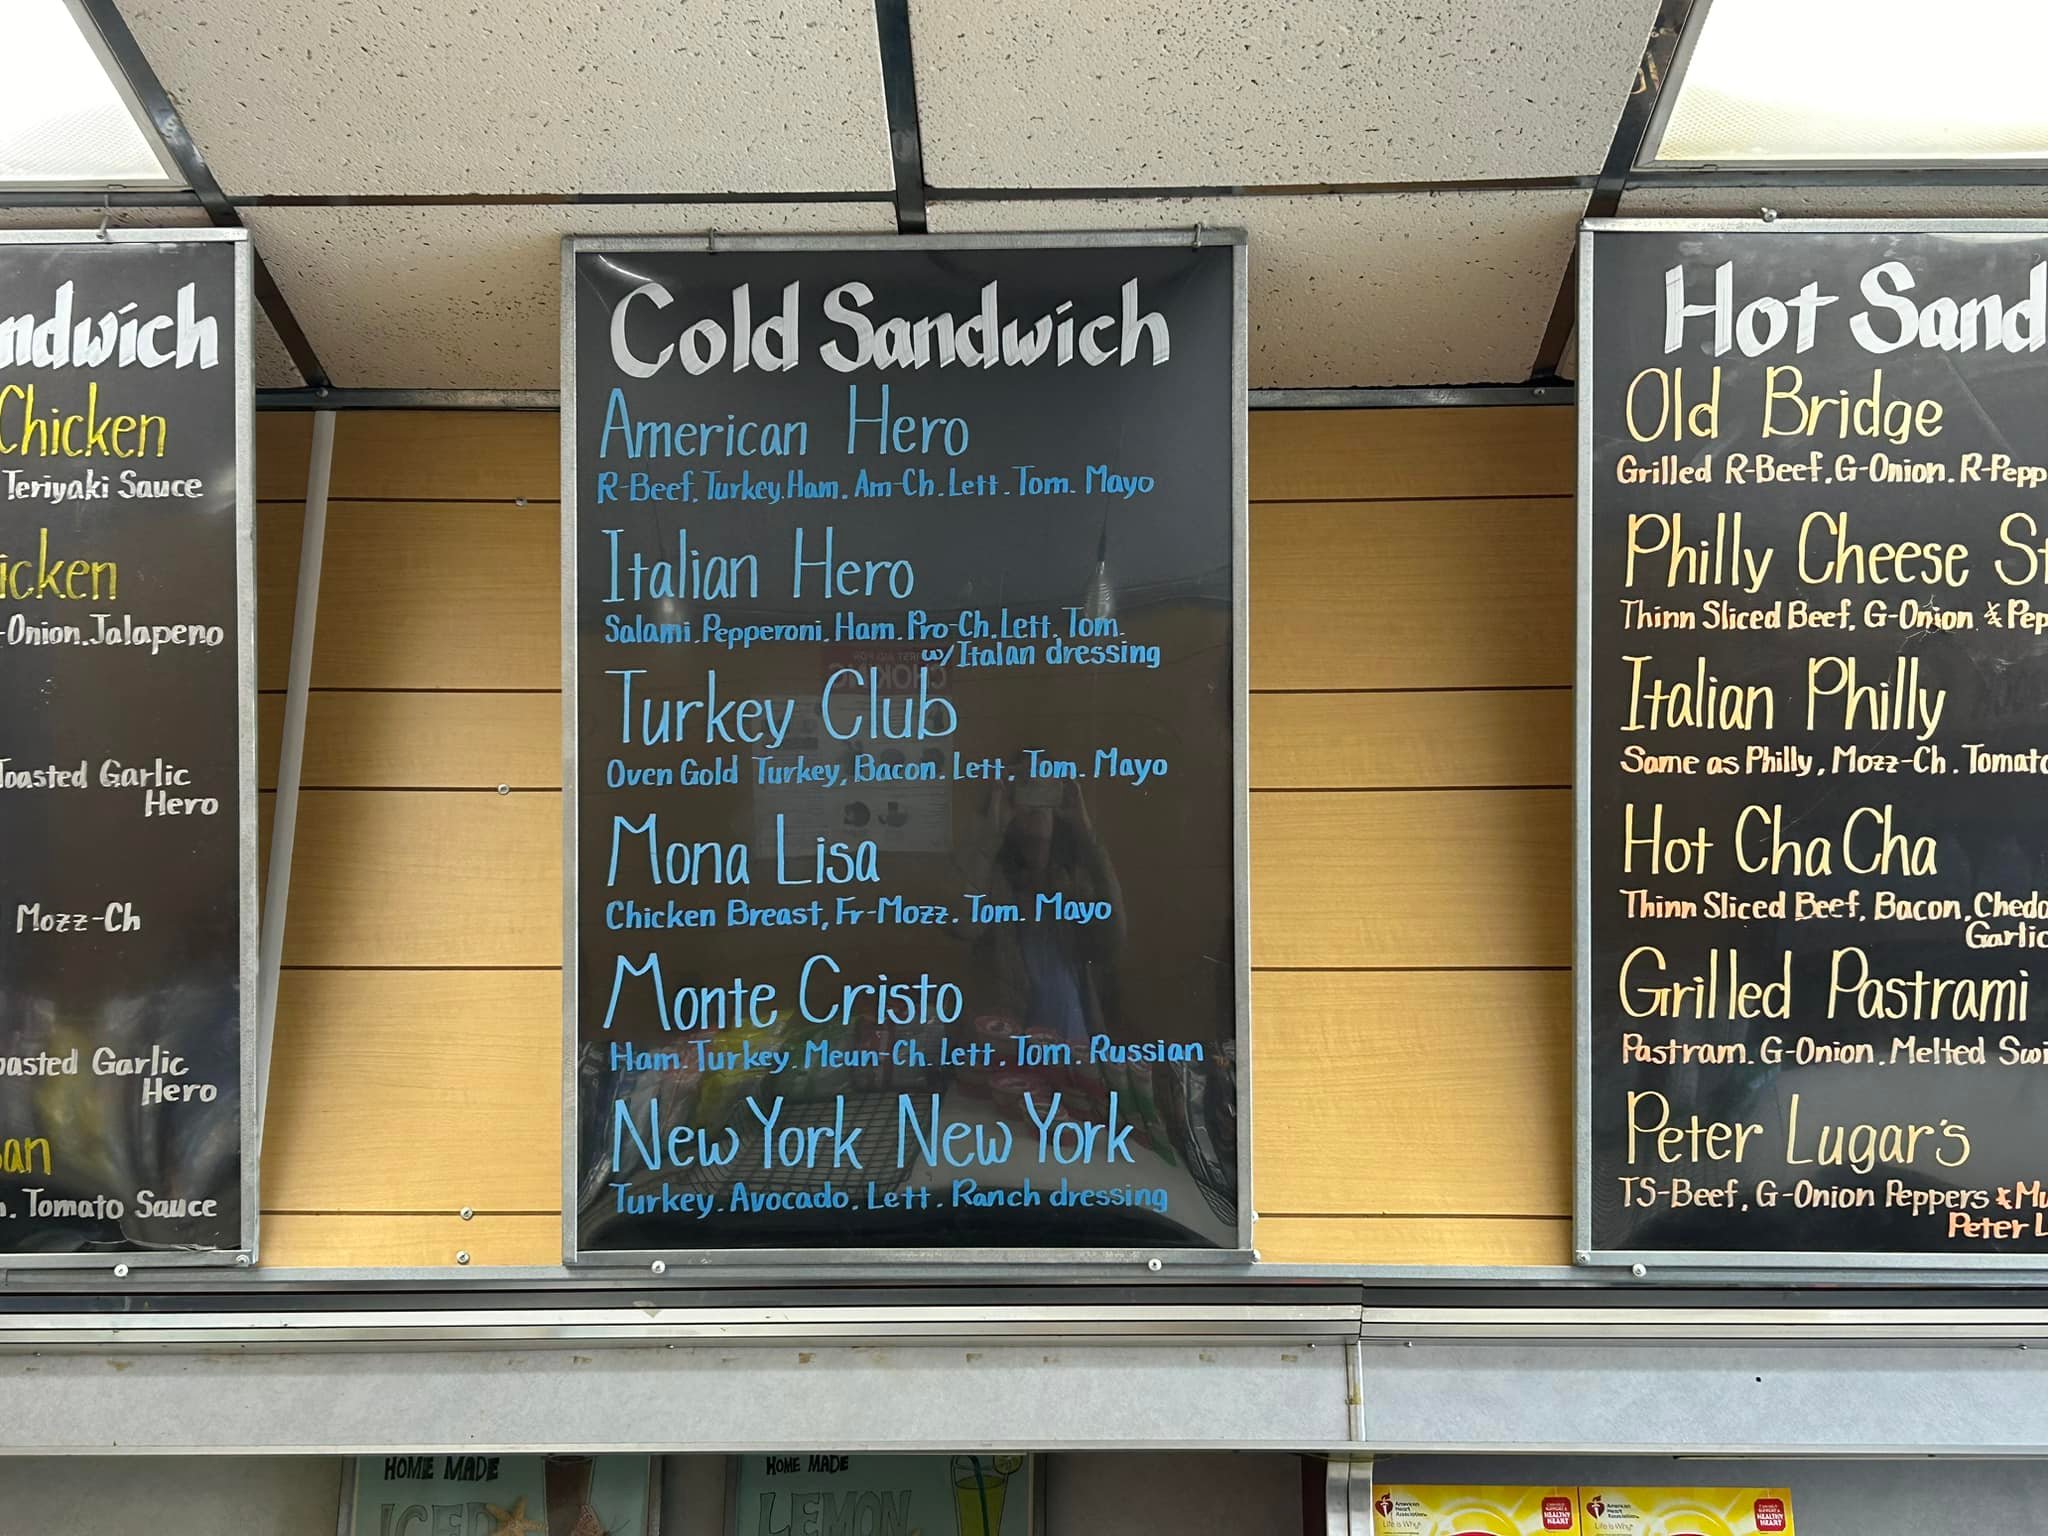 ndwich
Chicken
Teriyaki Sauce
icken
-Onion. Jalapeno
Toasted Garlic
Hero
Mozz-Ch
oasted Garlic
Hero
an
Tomato Sauce
Cold Sandwich
American Hero
R-Beef, Turkey, Ham. Am-Ch. Lett. Tom. Mayo
Italian Hero
Salami. Pepperoni. Ham. Pro-Ch. Lett. Tom.
w/ Italan dressing
Turkey Club
Oven Gold Turkey, Bacon. Lett. Tom. Mayo
Mona Lisa
Chicken Breast, Fr-Mozz. Tom. Mayo
Monte Cristo
Ham. Turkey. Meun-Ch. Lett. Tom. Russian
New York New York
Turkey. Avocado. Lett. Ranch dressing
Hot Sand
Old Bridge
Grilled R-Beef, G-Onion. R-Pepp
Philly Cheese St
Thinn Sliced Beef, G-Onion & Pep
Italian Philly
Same as Philly, Mozz-Ch. Tomato
Hot Cha Cha
Thinn Sliced Beef, Bacon, Chedd
Garlic
Grilled Pastrami
Pastram. G-Onion. Melted Swi
Peter Lugar's
TS-Beef, G-Onion Peppers & Mu
Peter L
HOME MADE
ICED
HOME MADE
LEMON
American
Heart
Association
Life is Why
HEALTHY
HEART
American
Heart
Association
Life is Why
HEALTHY
HEART